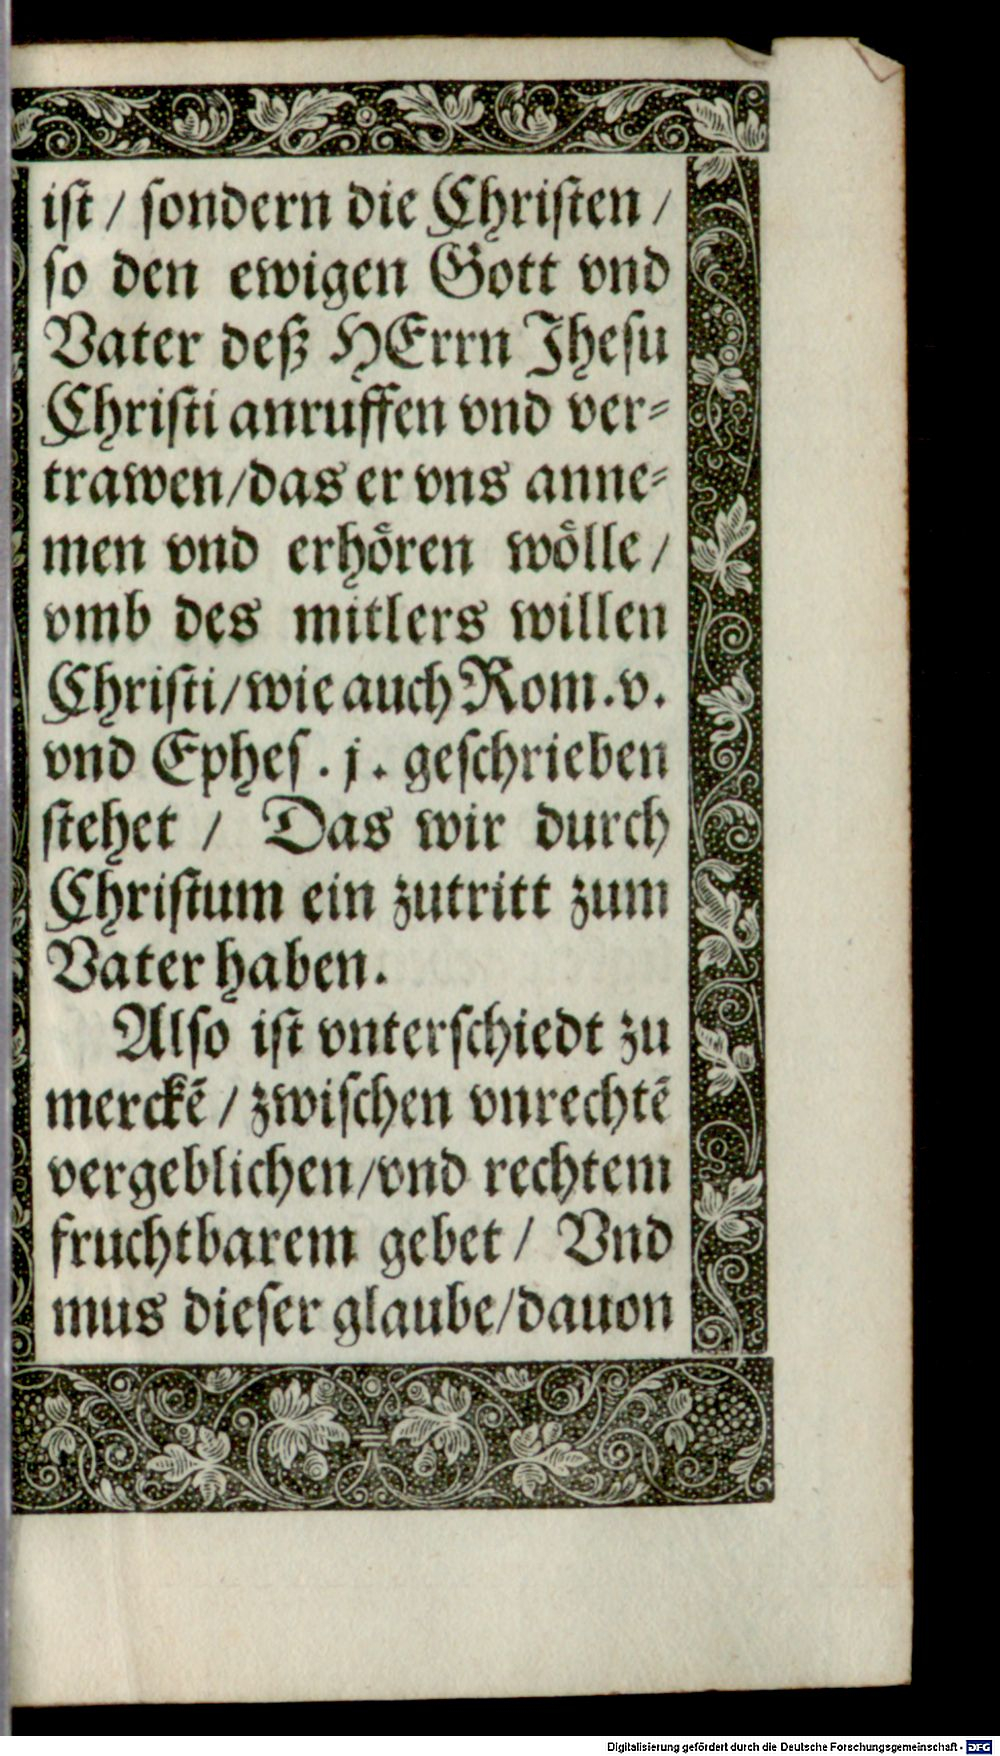 ist / sondern die Christen /
so den ewigen Gott vnd
Vater deß HErrn Jhesu
Christi anruffen vnd ver-
trawen/das er vns anne-
men vnd erhören wölle /
vmb des mitlers willen
Christi/wie auch Rom. v.
vnd Ephes. j. geschrieben
stehet / Das wir durch
Christum ein zutritt zum
Vater haben.
Also ist vnterschiedt zu
merckẽ / zwischen vnrechtẽ
vergeblichen/vnd rechtem
fruchtbarem gebet / Vnd
mus dieser glaube/dauon
Digitalisierung gefördert durch die Deutsche Forschungsgemeinschaft - DFG